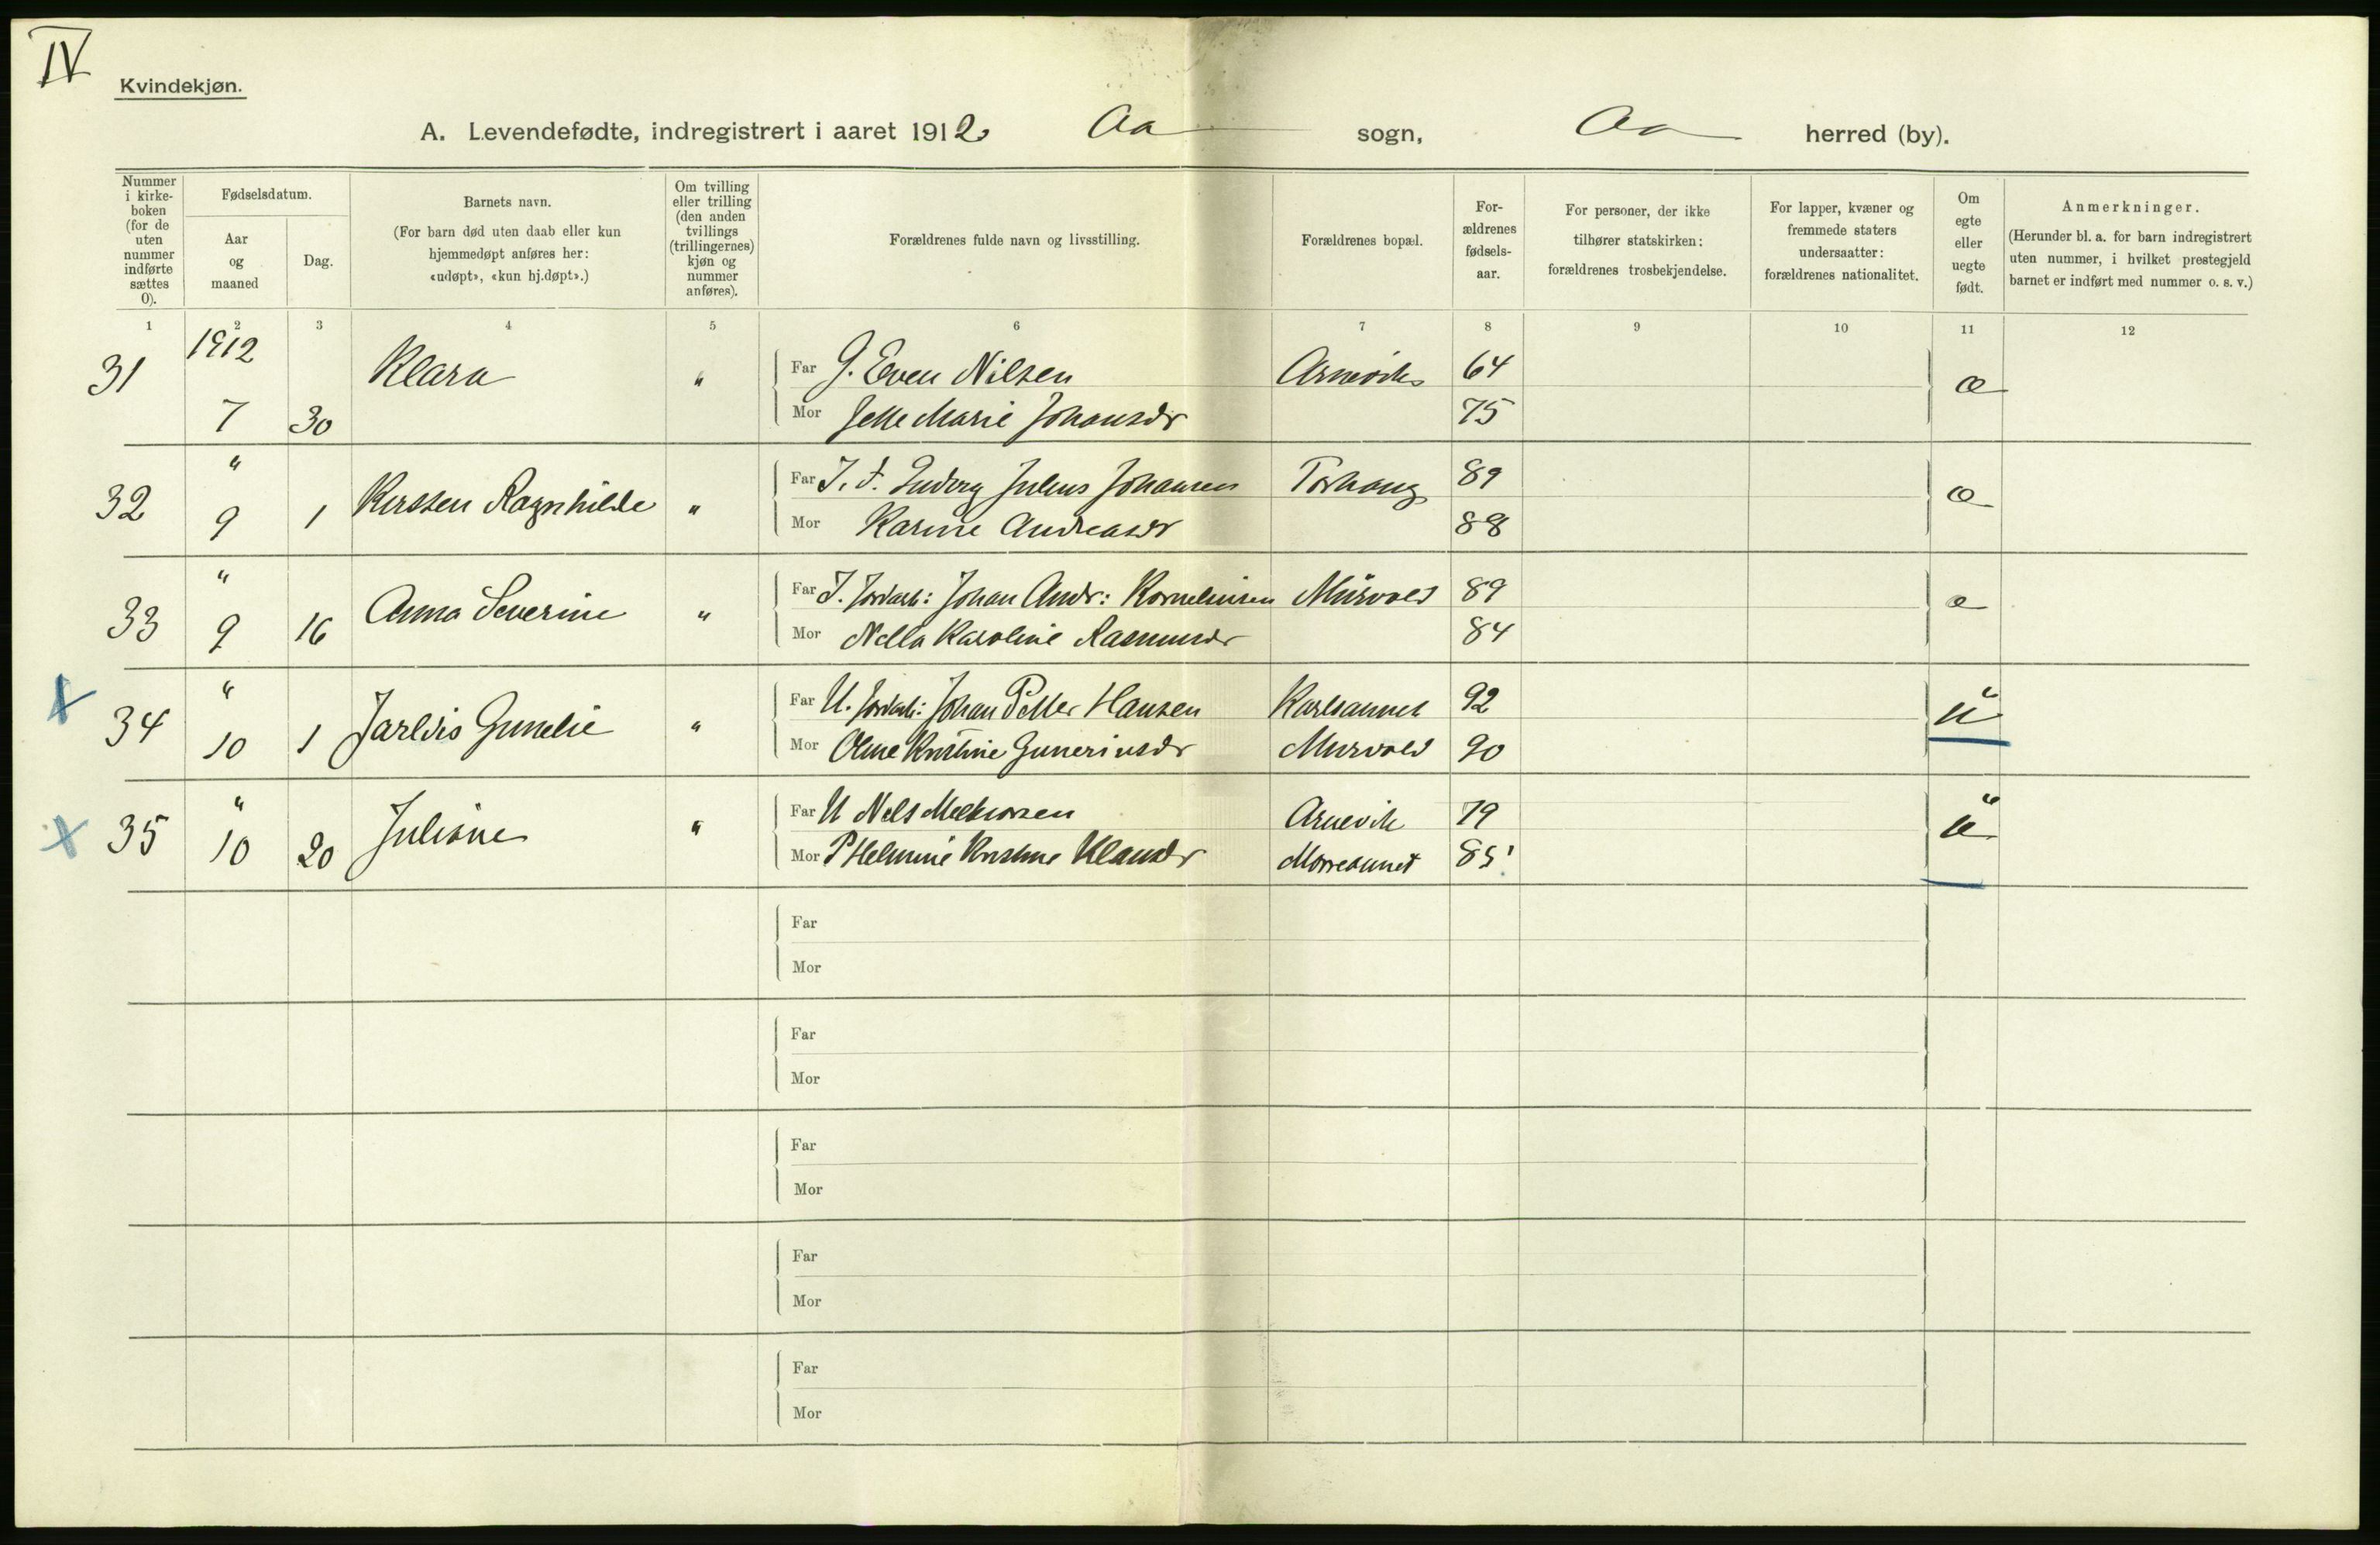 IV
Kvindekjøn.
A. Levendefødte, indregistrert i aaret 1912 Aa sogn, Aa herred (by).
Nummer i kirke- boken (for de uten nummer indførte sættes 0).
Fødselsdatum.
Aar og maaned
Dag.
Barnets navn.
(For barn død uten daab eller kun
hjemmedøpt anføres her:
«udøpt», «kun hj.døpt».)
Om tvilling eller trilling (den anden tvillings (trillingernes) kjøn og nummer anføres).
Forældrenes fulde navn og livsstilling.
Forældrenes bopæl.
For- ældrenes fødsels- aar.
For personer, der ikke
tilhører statskirken:
forældrenes trosbekjendelse.
For lapper, kvæner og
fremmede staters
undersaatter:
forældrenes nationalitet.
Om egte eller uegte født.
Anmerkninger.
(Herunder bl. a. for barn indregistrert
uten nummer, i hvilket prestegjeld
barnet er indført med nummer o. s. v.)
1 2 3 4 5 6 7 8 9 10 11 12
31 1912 Klara " Far G. Even Nilsen Arnevik 64 æ
7 30 Mor Jette Marie Johansdr 75
32 " Kirsten Ragnhilde " Far I. F. Ludvig Julius Johansen 89 æ
9 1 Mor Karine Andreasdr 88
33 " Anna Severine " Far I. Jordarb: Johan Andr: Korneliusen Murvold 89 æ
9 16 Mor Nella Karoline Rasmusdr 84
X 34 " Jarldis Gunelie " Far U. Jordarb: Johan Petter Hansen 92 u
10 1 Mor Oline Kristine Guneriusdr Murvold 90
X 35 " Juliane " Far U Nels Melkiorsen Arnevik 79 u
10 20 Mor P Helmine Kristine Klausdr 85
Far
Mor
Far
Mor
Far
Mor
Far
Mor
Far
Mor